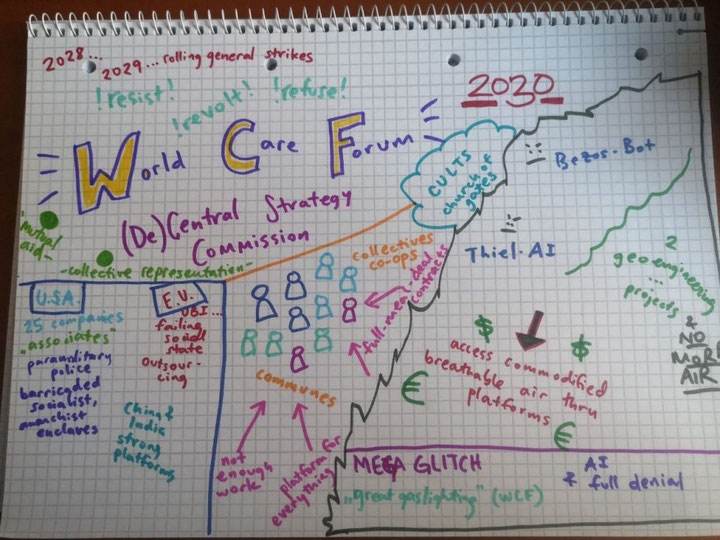 2028...
2029... rolling general strikes
!resist!
!revolt!
!refuse!
2030
World Care Forum
(De)Central Strategy
Commission
mutual
aid-
-collective representation-
CULTS
church of
gates
Bezos-Bot
Thiel-AI
2
geo-engineering
... projects
& NO
MORE
AIR
U.S.A.
25 companies
"associates"
paramilitary
police
barricaded
socialist,
anarchist
enclaves
E.U.
UBI...
failing
social
state
outsour-
cing
China &
India
strong
platforms
collectives
co-ops
communes
full-mea -deal
contracts
not
enough
work
platform for
everything
$
$
access commodified
breathable air thru
platforms
€
€
MEGA GLITCH
„great gaslighting" (WCF)
AI
& full denial